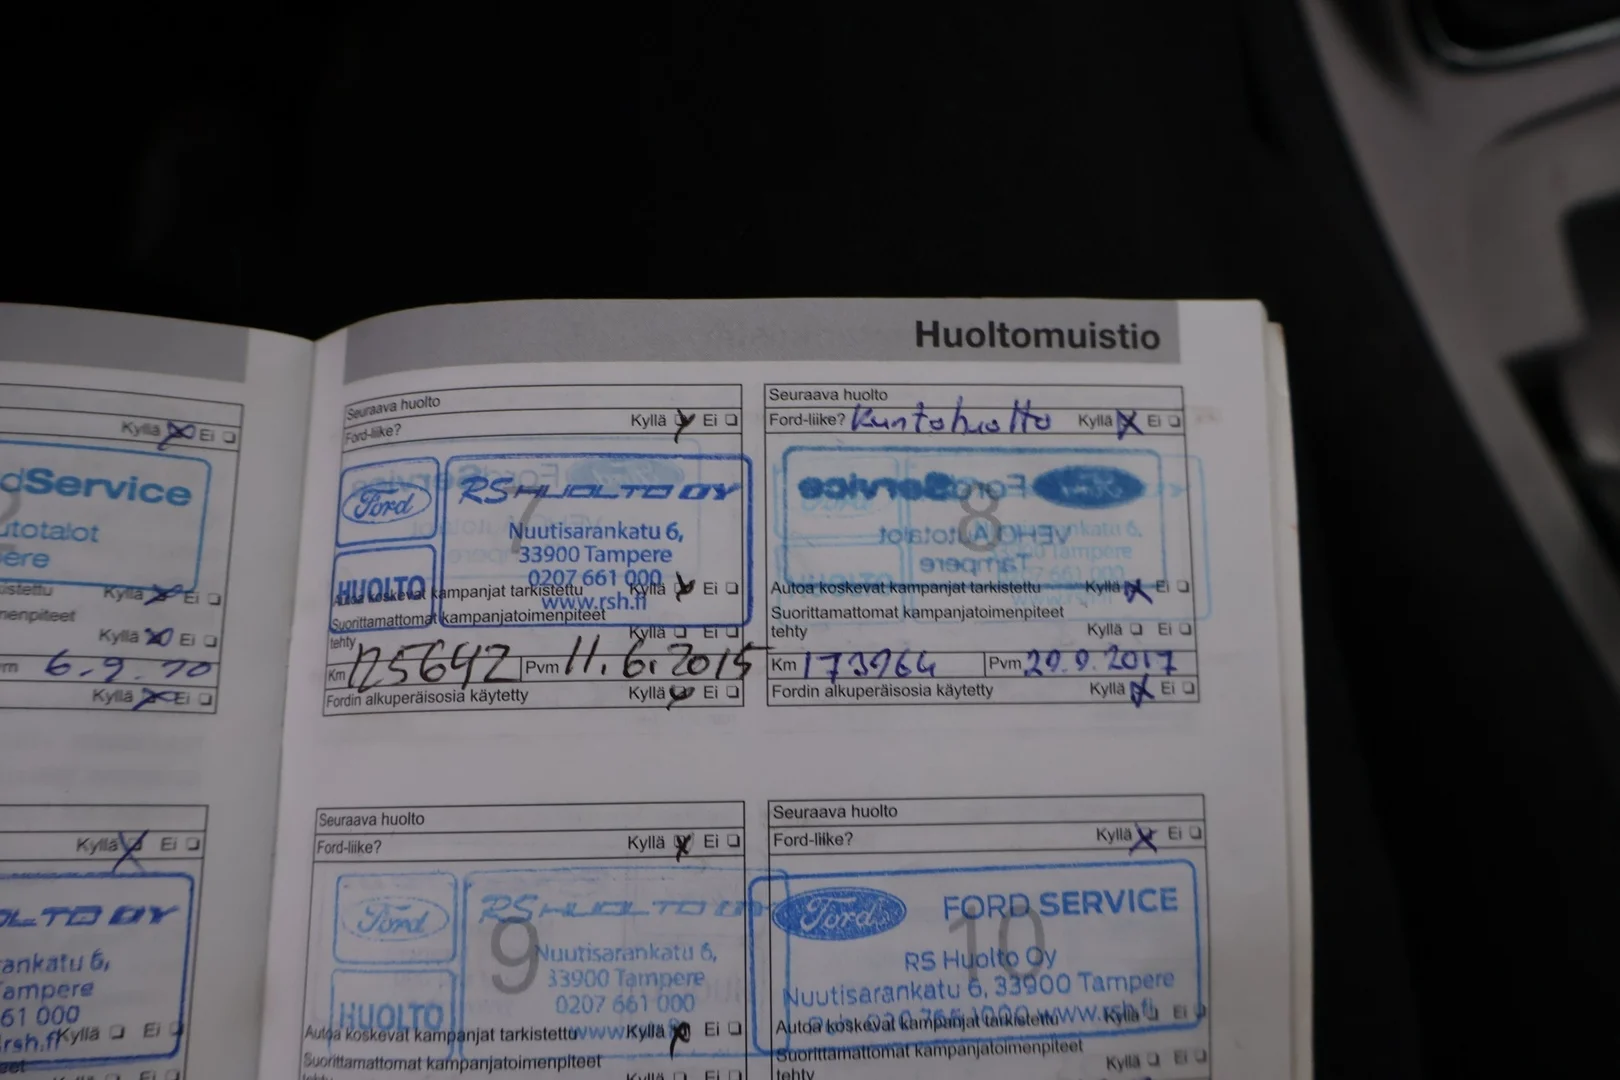 Huoltomuistio
Kyllä Ei
dService
utotalot
ere
istettu Kyllä Ei
menpiteet
Kyllä Ei
6.9.10
Kyllä Ei
Seuraava huolto
Ford-liike? Kyllä Ei
7
Ford
RS HUOLTO OY
Nuutisarankatu 6,
33900 Tampere
0207 661 000
www.rsh.fi
HUOLTO
Autoa koskevat kampanjat tarkistettu Kyllä Ei
Suorittamattomat kampanjatoimenpiteet
tehty Kyllä Ei
Km 125642 Pvm 11.6.2015
Fordin alkuperäisosia käytetty Kyllä Ei
Seuraava huolto
Ford-liike? Kuntohuolto Kyllä Ei
8
Ford
FordService
VEHO Autotalot
Tampere
Autoa koskevat kampanjat tarkistettu Kyllä Ei
Suorittamattomat kampanjatoimenpiteet
tehty Kyllä Ei
Km 173964 Pvm 29.9.2017
Fordin alkuperäisosia käytetty Kyllä Ei
Kyllä Ei
OLTO OY
ankatu 6,
ampere
61 000
rsh.fi Kyllä Ei
eet
Kyllä Ei
Seuraava huolto
Ford-liike? Kyllä Ei
9
Ford
RS HUOLTO
Nuutisarankatu 6,
33900 Tampere
0207 661 000
www
HUOLTO
Autoa koskevat kampanjat tarkistettu Kyllä Ei
Suorittamattomat kampanjatoimenpiteet
tehty Kyllä Ei
Seuraava huolto
Ford-liike? Kyllä Ei
10
Ford
FORD SERVICE
RS Huolto Oy
Nuutisarankatu 6, 33900 Tampere
www.rsh.fi
Autoa koskevat kampanjat tarkistettu Kyllä Ei
Suorittamattomat kampanjatoimenpiteet
tehty Kyllä Ei